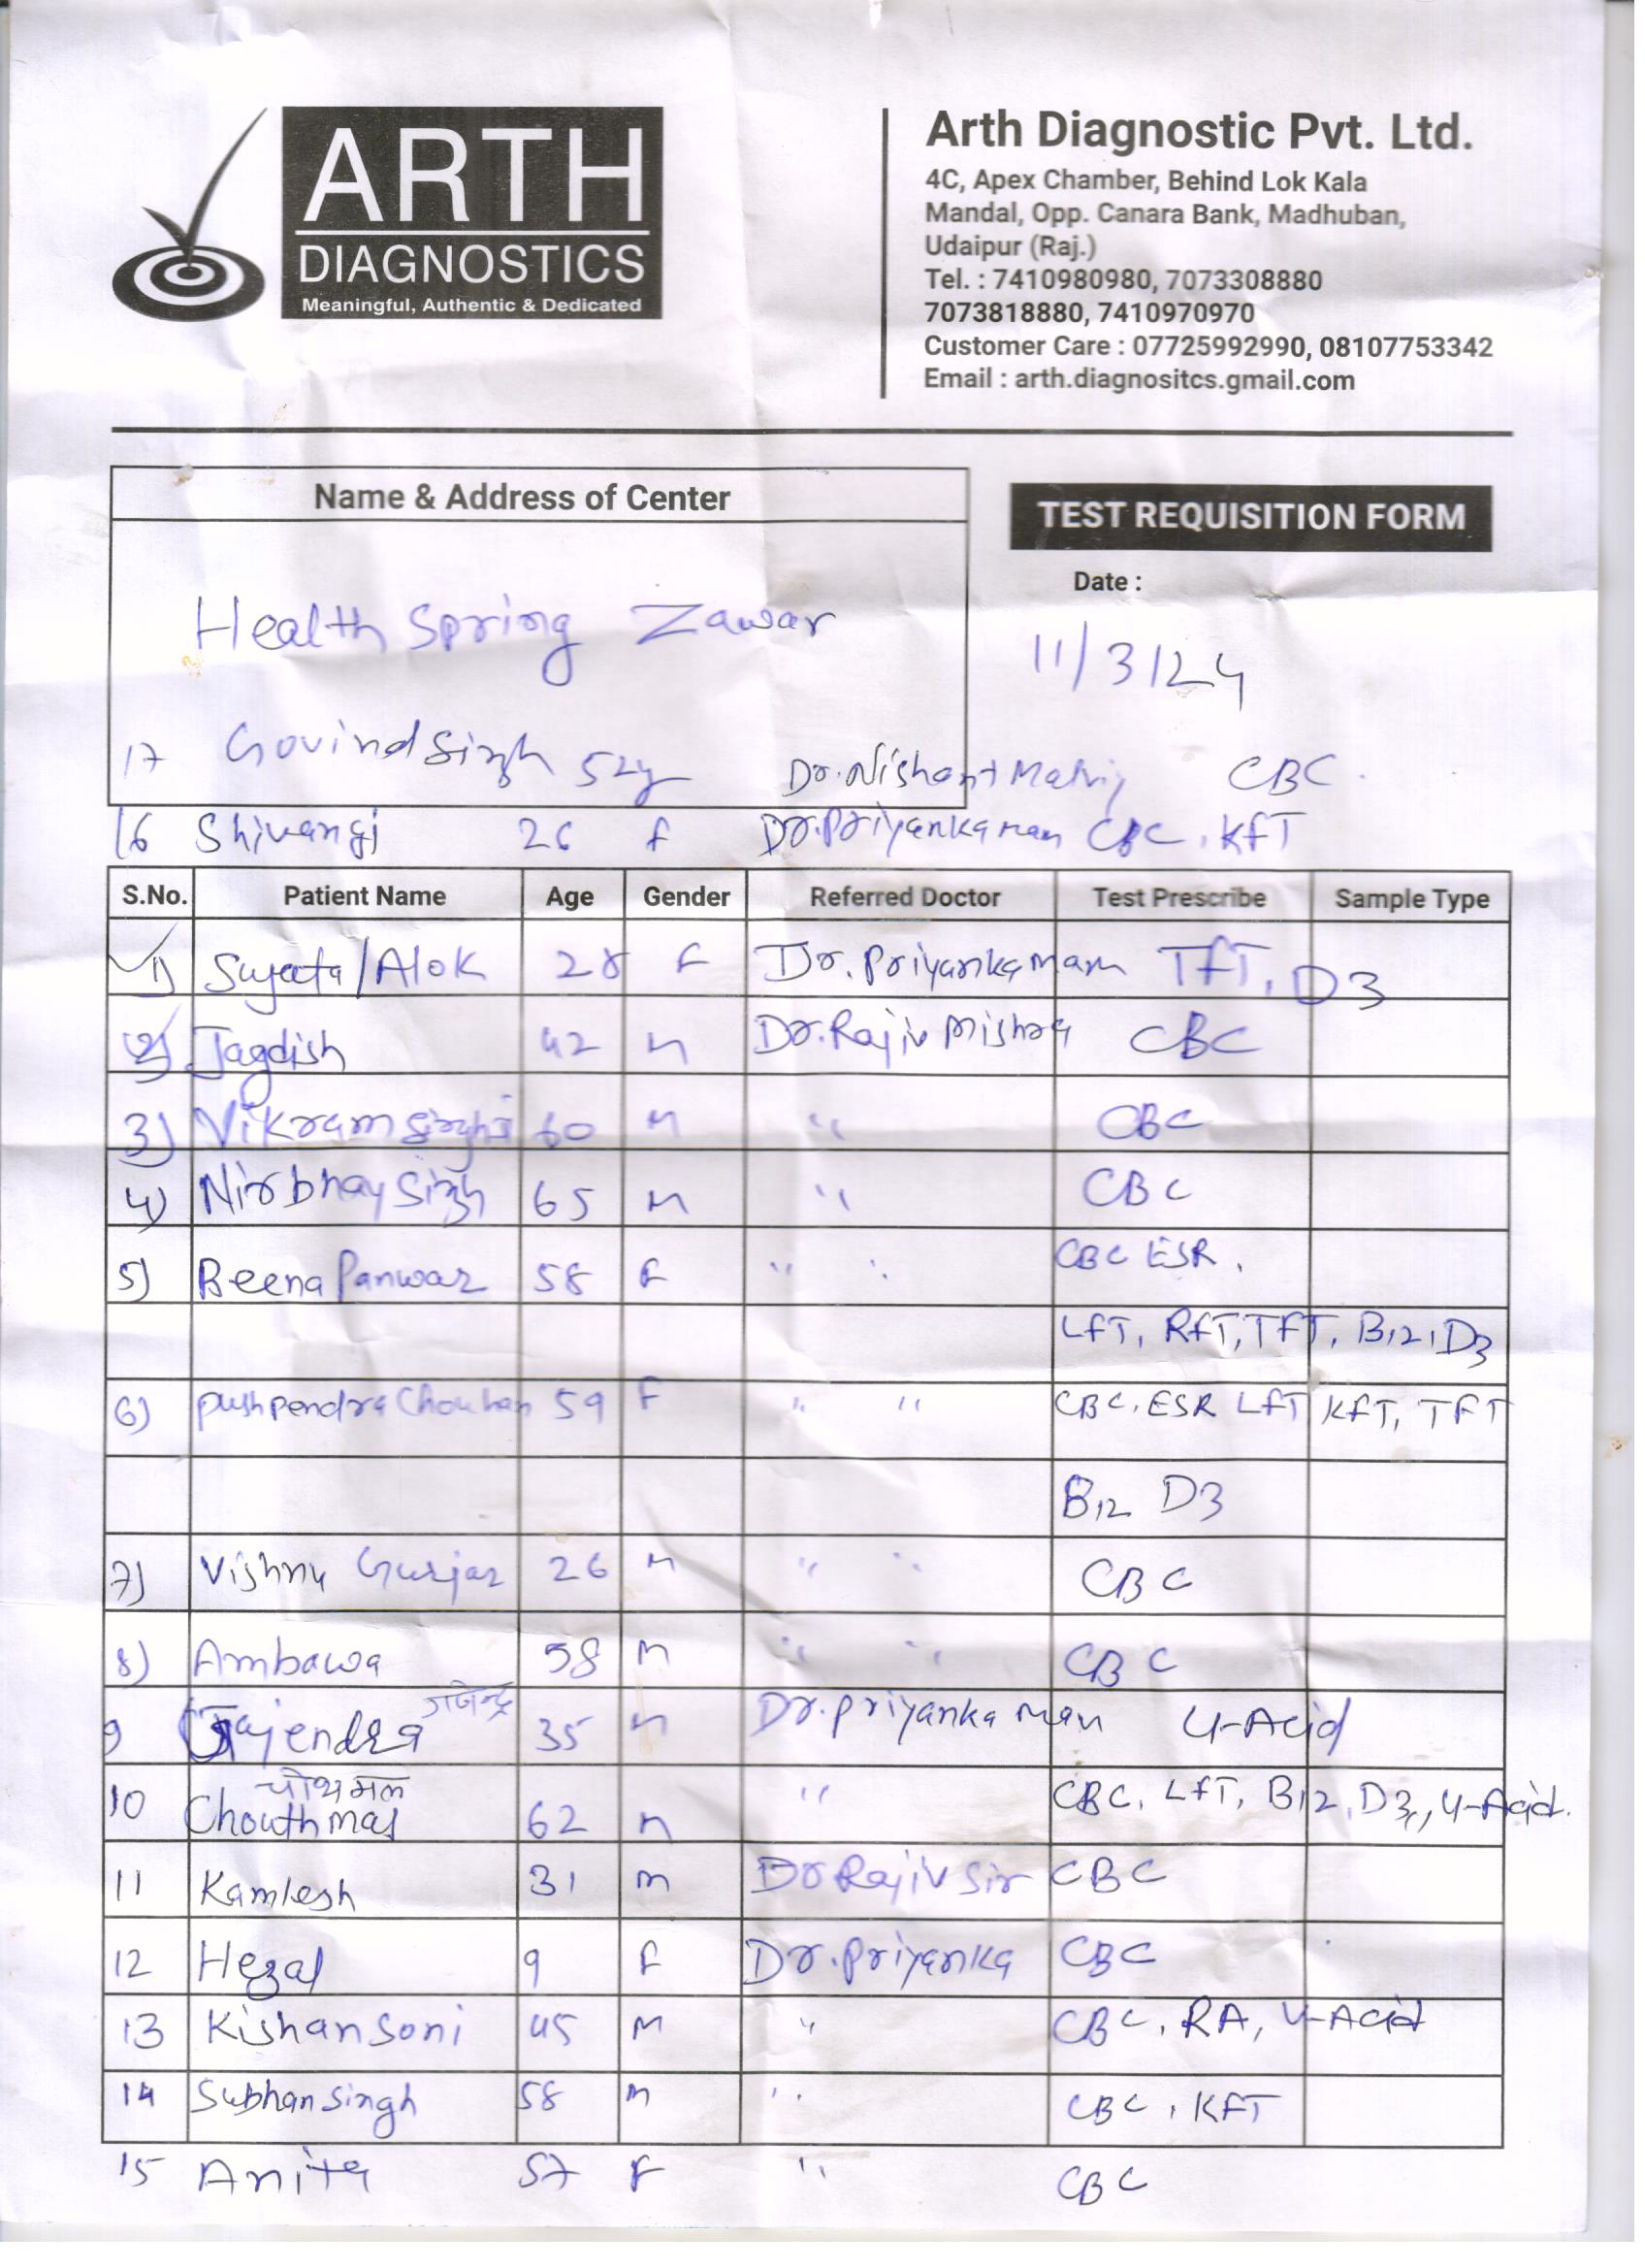 ARTH
DIAGNOSTICS
Meaningful, Authentic & Dedicated
Arth Diagnostic Pvt. Ltd.
4C, Apex Chamber, Behind Lok Kala
Mandal, Opp. Canara Bank, Madhuban,
Udaipur (Raj.)
Tel. : 7410980980, 7073308880
7073818880, 7410970970
Customer Care : 07725992990, 08107753342
Email : arth.diagnositcs.gmail.com
Name & Address of Center
TEST REQUISITION FORM
Date :
Health Spring Zawar
11/3/24
17 Govind Singh 52y Dr. Nishant CBC
16 Shivangi 26 F Dr. Priyanka mam CBC, KFT
S.No. Patient Name Age Gender Referred Doctor Test Prescribe Sample Type
1) Sujata/Alok 28 F Dr. Priyanka mam TFT, D3
2) Jagdish 42 M Dr. Rajiv Mishra CBC
3) Vikram Singh 60 M " CBC
4) Nirbhay Singh 65 M " CBC
5) Beena Panwar 58 F " " CBC ESR,
LFT, RFT, TFT, B12, D3
6) Pushpendra Chouhan 59 F " " CBC, ESR LFT KFT, TFT
B12 D3
7) Vishnu Gurjar 26 M " " CBC
8) Ambawa 58 M " " CBC
गजेन्द्र
9 Gajendra 35 M Dr. Priyanka mam U-Acid
चोथमल
10 Chouthmal 62 M " CBC, LFT, B12, D3, U-Acid.
11 Kamlesh 31 M Dr Rajiv Sir CBC
12 Hezal 9 F Dr. Priyanka CBC
13 Kishan Soni 45 M " CBC, RA, U-Acid
14 Subhan Singh 58 M " CBC, KFT
15 Anita 57 F " CBC